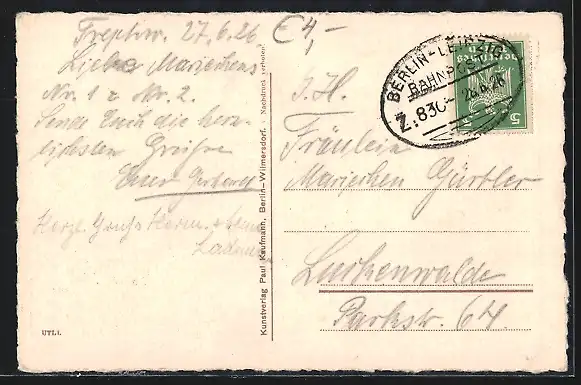 Treptow. 27.6.26
€4,-
Liebe Mariechens
Nr. 1 & Nr. 2.
Sende Euch die herz-
lichsten Grüße
Euer
Herzl. Gruß Herm.
Kunstverlag Paul Kaufmann, Berlin-Wilmersdorf. Nachdruck verboten.
UTL1.
BERLIN-LEIPZIG
BAHNPOST
Z.830
26.6.26
5
Fräulein
Mariechen Gürtler
Luckenwalde
Parkstr. 64